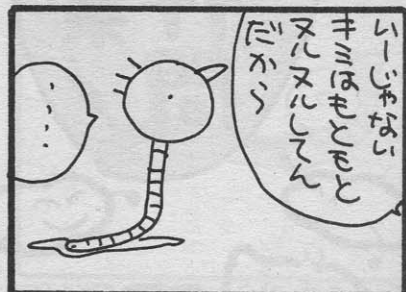 いーじゃない
キミはもともと
ヌルヌルしてん
だから
....